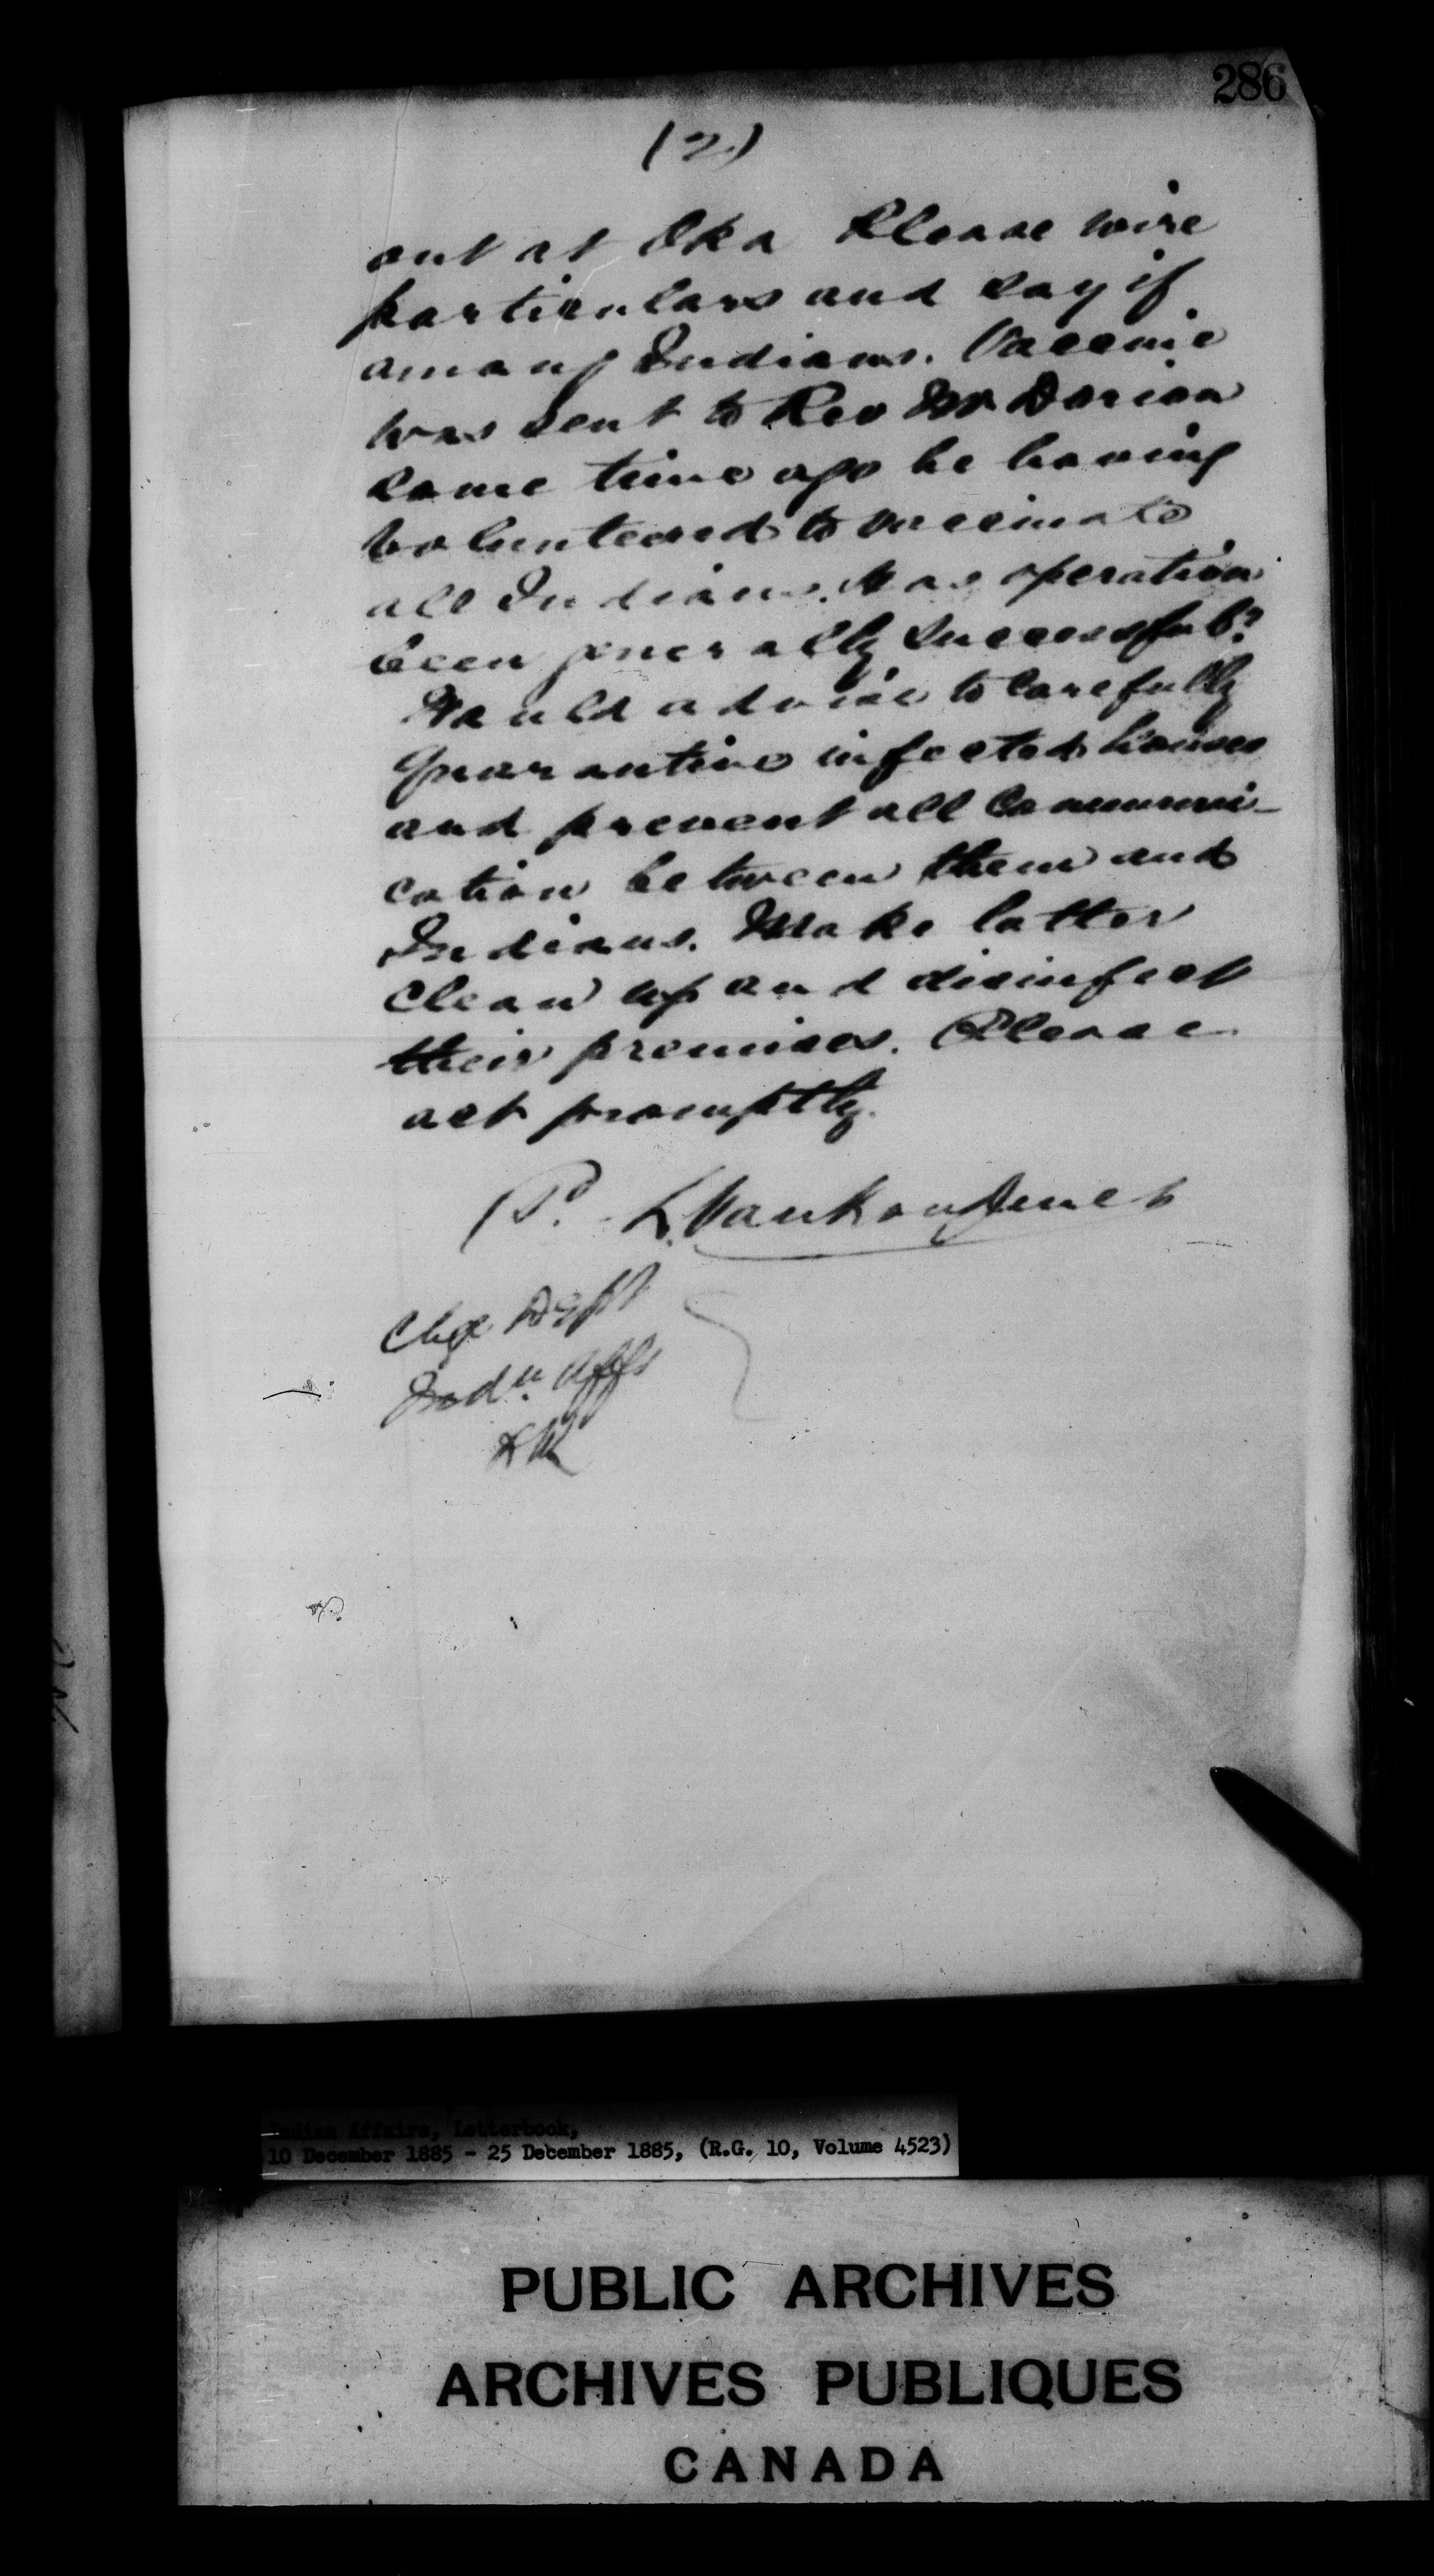 286
(2)
out at Oka Please wire
particulars and say if
among Indians. Vaccine
was sent to Rev Mr Dorion
some time ago he having
volunteered to vaccinate
all Indians. Has operation
been generally successful?
Would advise to carefully
quarantine infected houses
and prevent all communi-
cation between them and
Indians. Make latter
clean up and disinfect
their premises. Please
act promptly.
L. Vankoughnet
Chge Dept
Indn. Affs
Indian Affairs, Letterbook,
10 December 1885 - 25 December 1885, (R.G. 10, Volume 4523)
PUBLIC ARCHIVES
ARCHIVES PUBLIQUES
CANADA